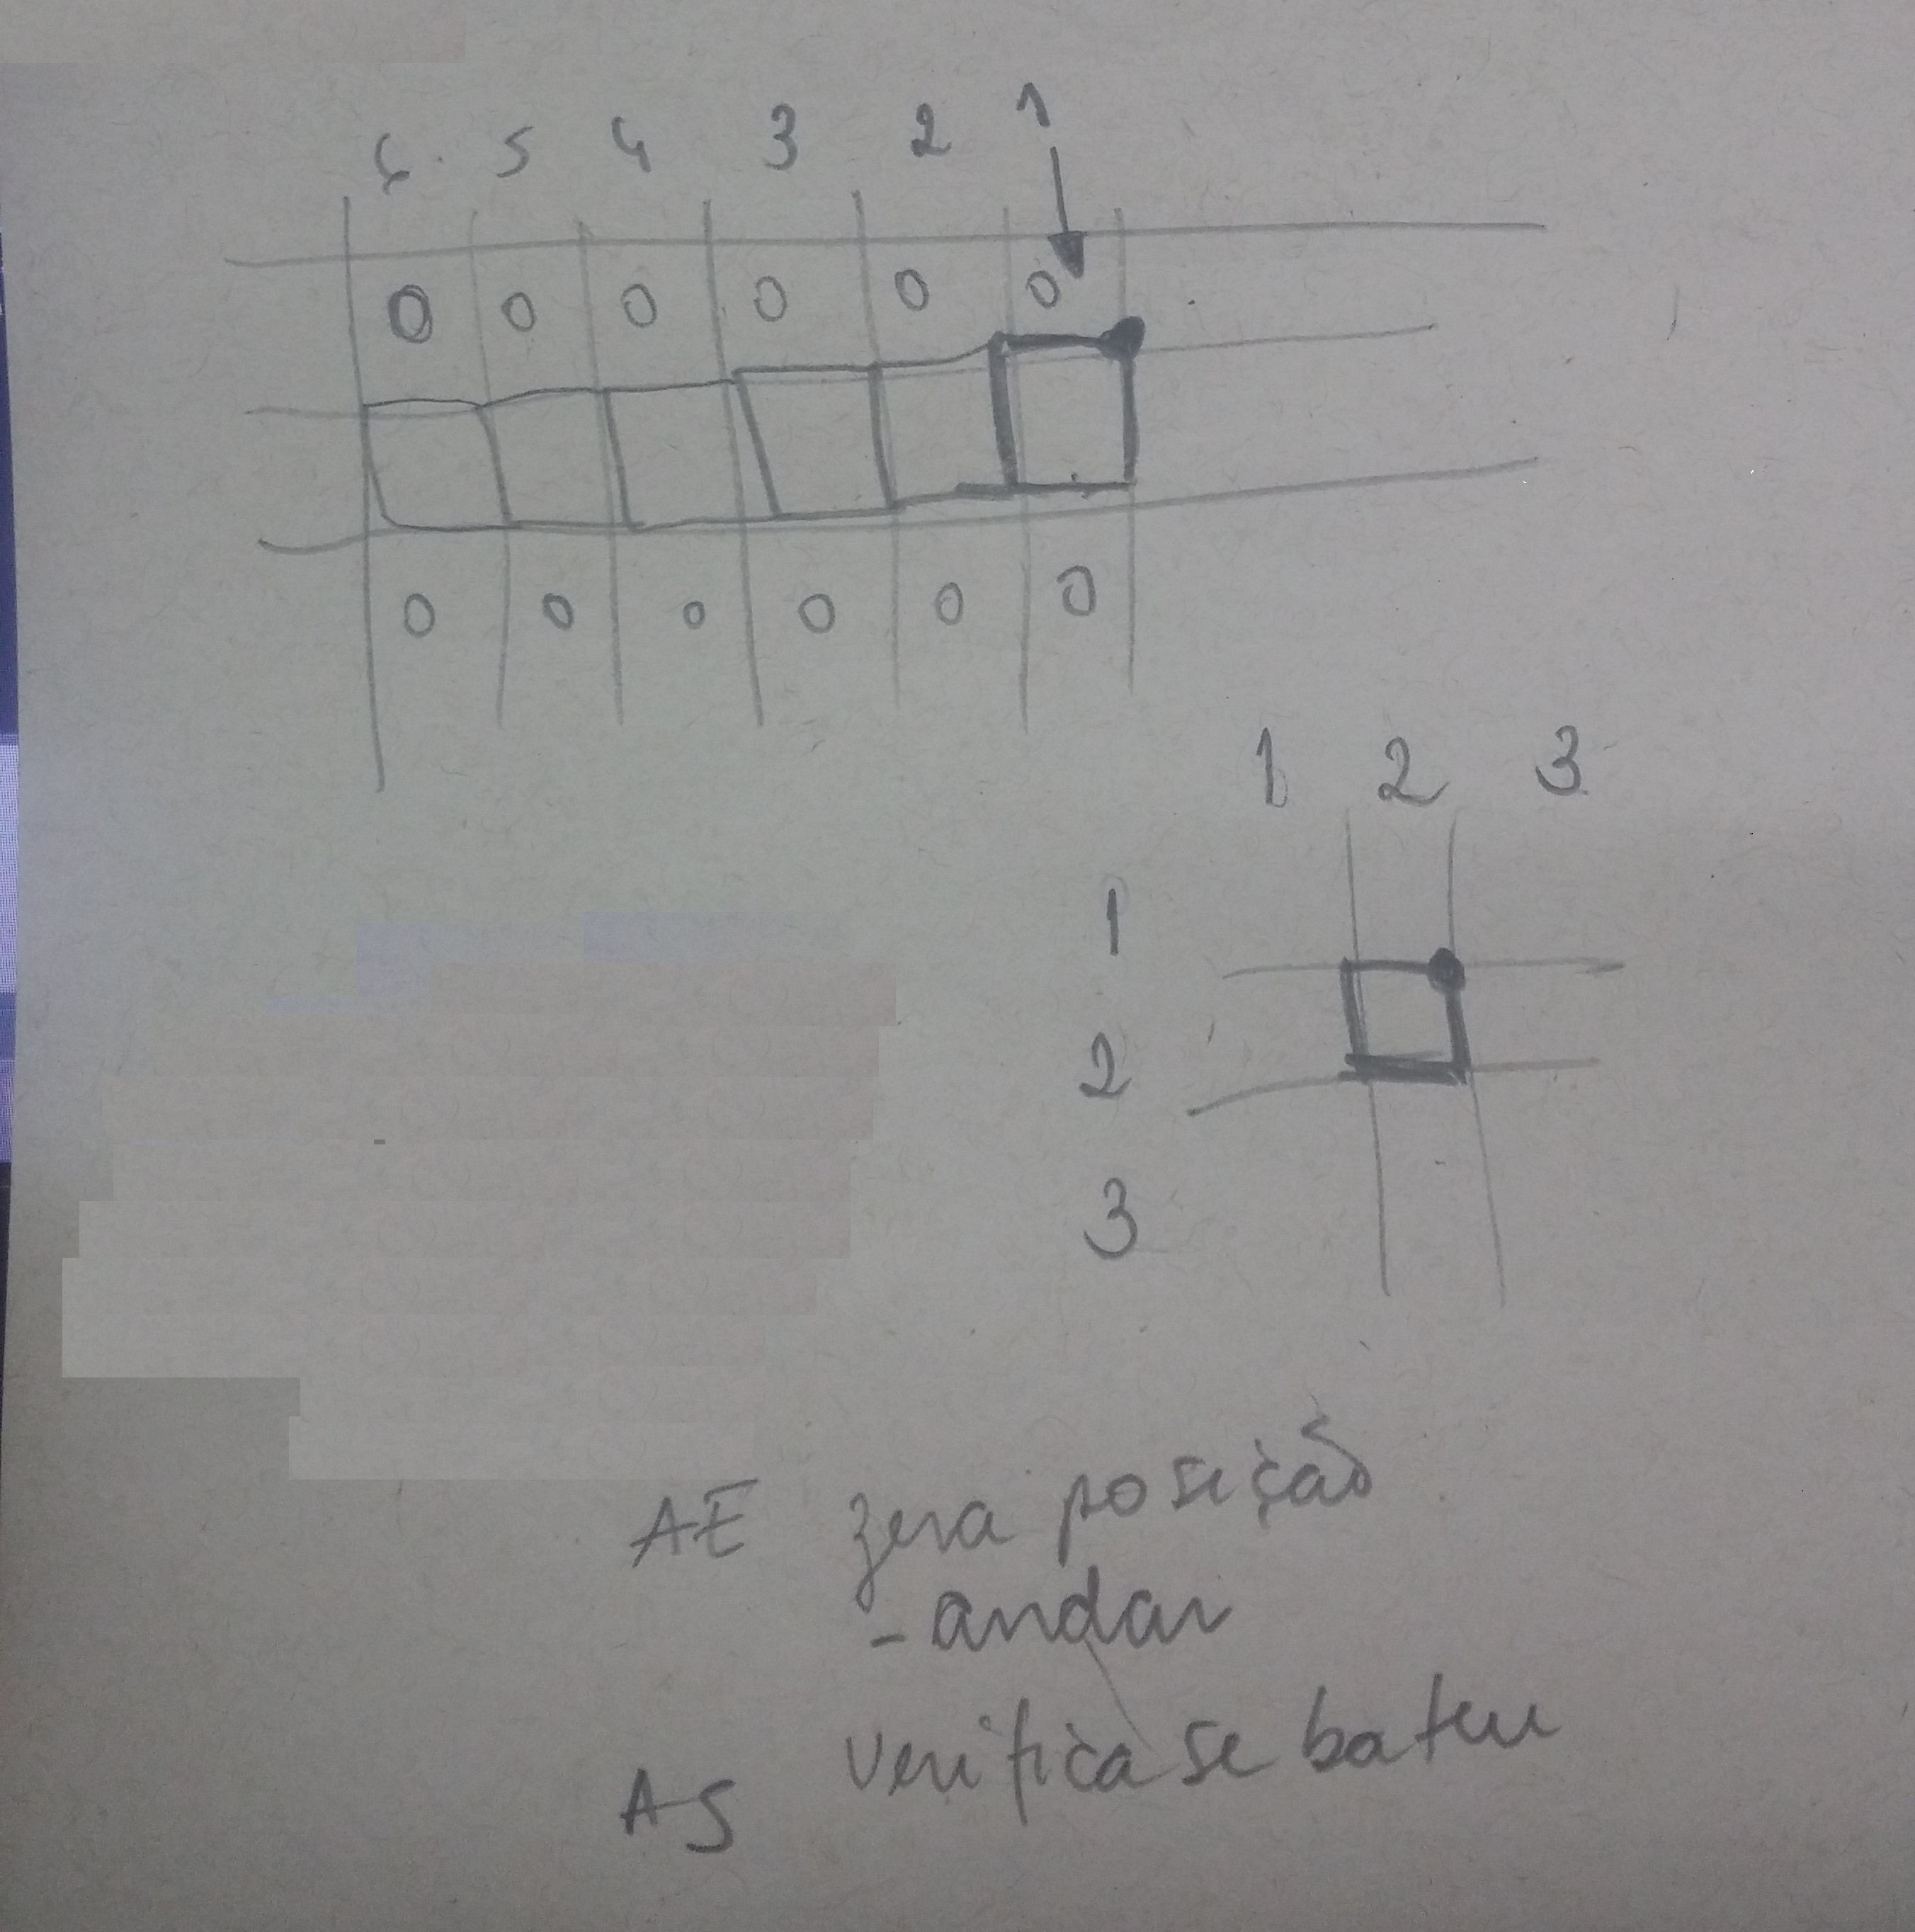 6. 5 4 3 2 1
0 0 0 0 0 0
0 0 0 0 0 0
1 2 3
1
2
3
AE zera posição
- andar
verifica se bateu
AS